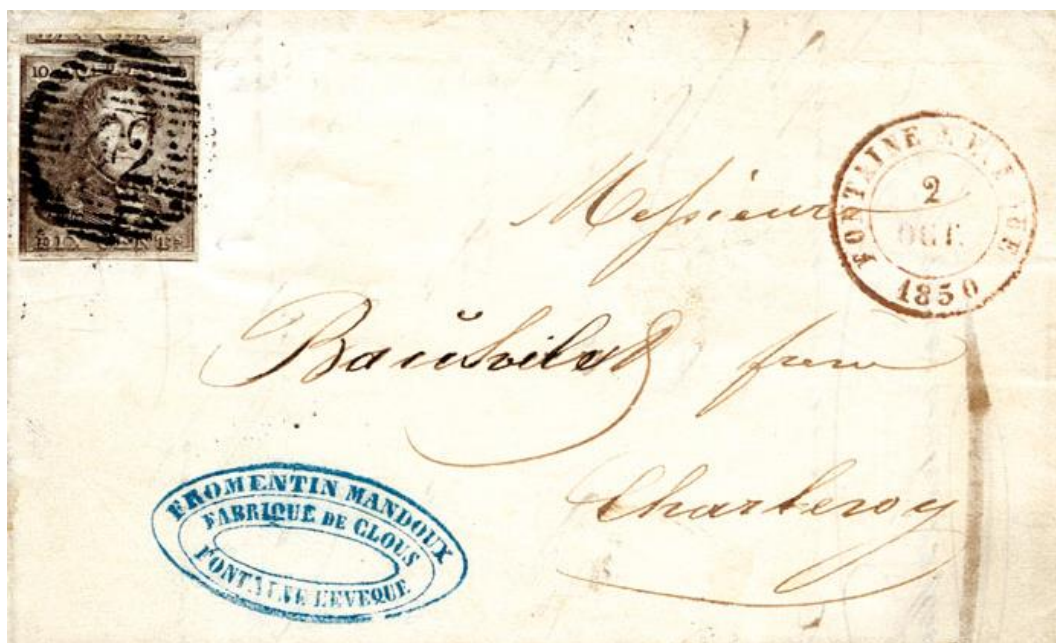 10
22
FONTAINE L'EVEQUE
2
OCT.
1850
Messieurs
frere
Charleroy
FROMENTIN MANDOUX
FABRIQUE DE CLOUS
FONTAINE L'EVEQUE